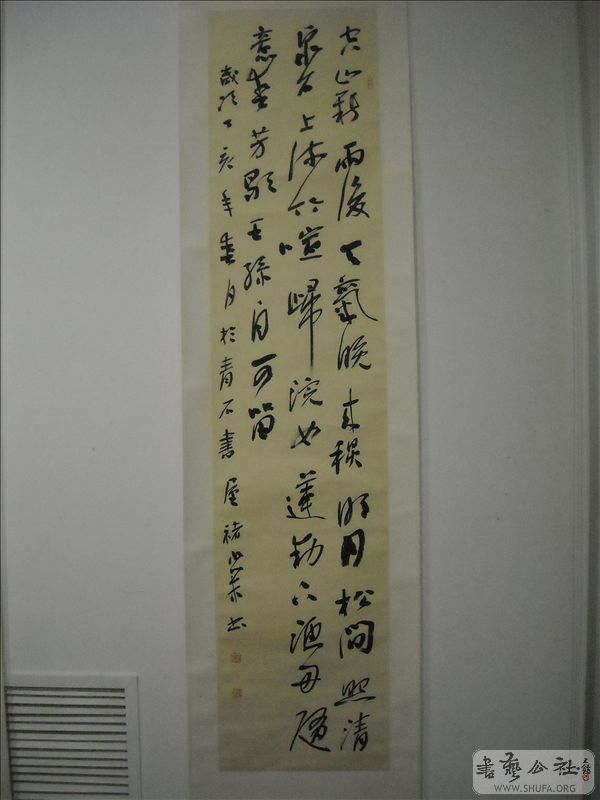 空山新雨後天氣晚來秋明月松間照清
泉石上流竹喧歸浣女蓮動下漁舟隨
意春芳歇王孫自可留
歲次丁亥年春月於青石書屋褚
書藝公社
WWW.SHUFA.ORG